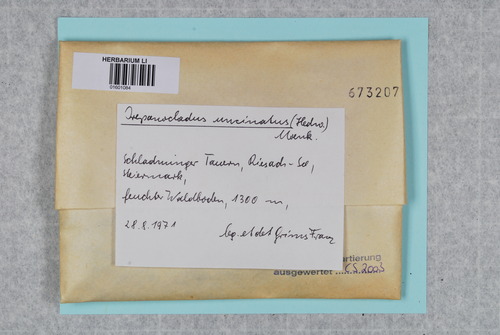 HERBARIUM LI
01601084
673207
Drepanocladus uncinatus (Hedw.)
Warnst.
Schladminger Tauern, Riesach-See,
Steiermark,
feuchter Waldboden, 1300 m,
28.8.1971
leg. et det. Grims Franz
ausgewertet